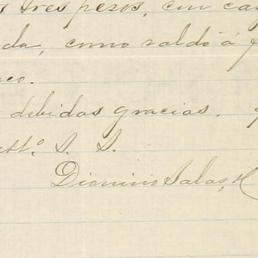 tres pesos, en
da, como saldo á
debidas gracias.
S. S.
Dionisio Salas, H